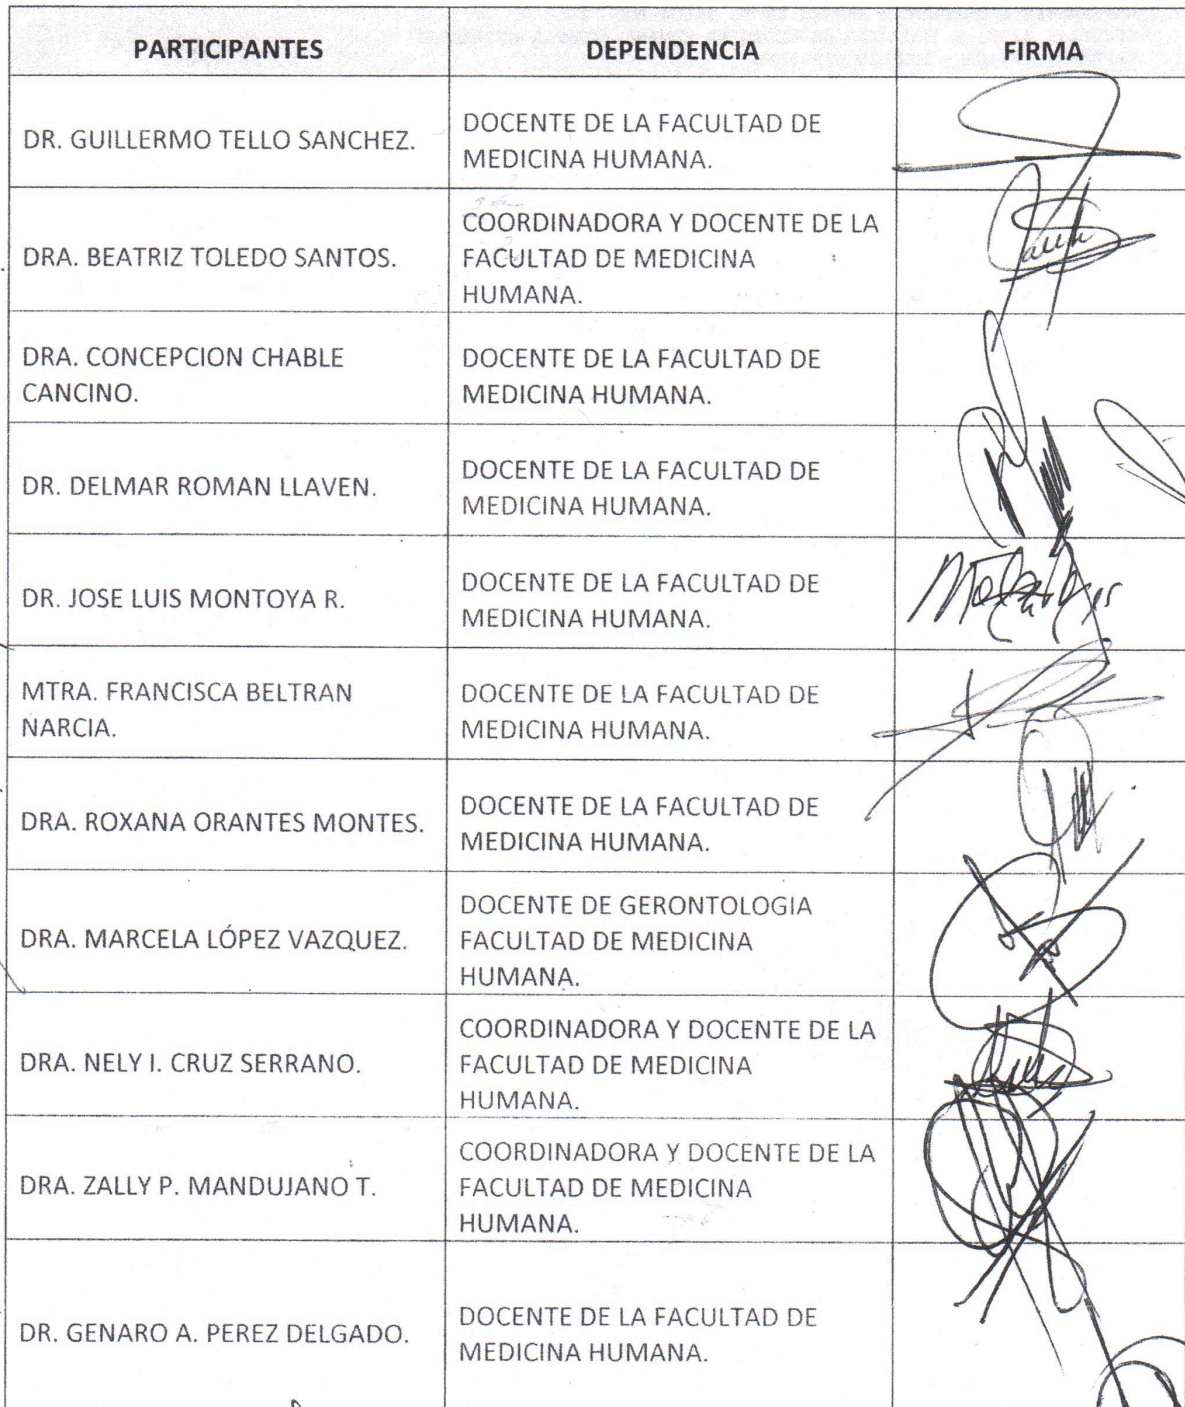 PARTICIPANTES DEPENDENCIA FIRMA
DR. GUILLERMO TELLO SANCHEZ.
DOCENTE DE LA FACULTAD DE
MEDICINA HUMANA.
DRA. BEATRIZ TOLEDO SANTOS.
COORDINADORA Y DOCENTE DE LA
FACULTAD DE MEDICINA
HUMANA.
DRA. CONCEPCION CHABLE
CANCINO.
DOCENTE DE LA FACULTAD DE
MEDICINA HUMANA.
DR. DELMAR ROMAN LLAVEN.
DOCENTE DE LA FACULTAD DE
MEDICINA HUMANA.
DR. JOSE LUIS MONTOYA R.
DOCENTE DE LA FACULTAD DE
MEDICINA HUMANA.
MTRA. FRANCISCA BELTRAN
NARCIA.
DOCENTE DE LA FACULTAD DE
MEDICINA HUMANA.
DRA. ROXANA ORANTES MONTES.
DOCENTE DE LA FACULTAD DE
MEDICINA HUMANA.
DRA. MARCELA LÓPEZ VAZQUEZ.
DOCENTE DE GERONTOLOGIA
FACULTAD DE MEDICINA
HUMANA.
DRA. NELY I. CRUZ SERRANO.
COORDINADORA Y DOCENTE DE LA
FACULTAD DE MEDICINA
HUMANA.
DRA. ZALLY P. MANDUJANO T.
COORDINADORA Y DOCENTE DE LA
FACULTAD DE MEDICINA
HUMANA.
DR. GENARO A. PEREZ DELGADO.
DOCENTE DE LA FACULTAD DE
MEDICINA HUMANA.